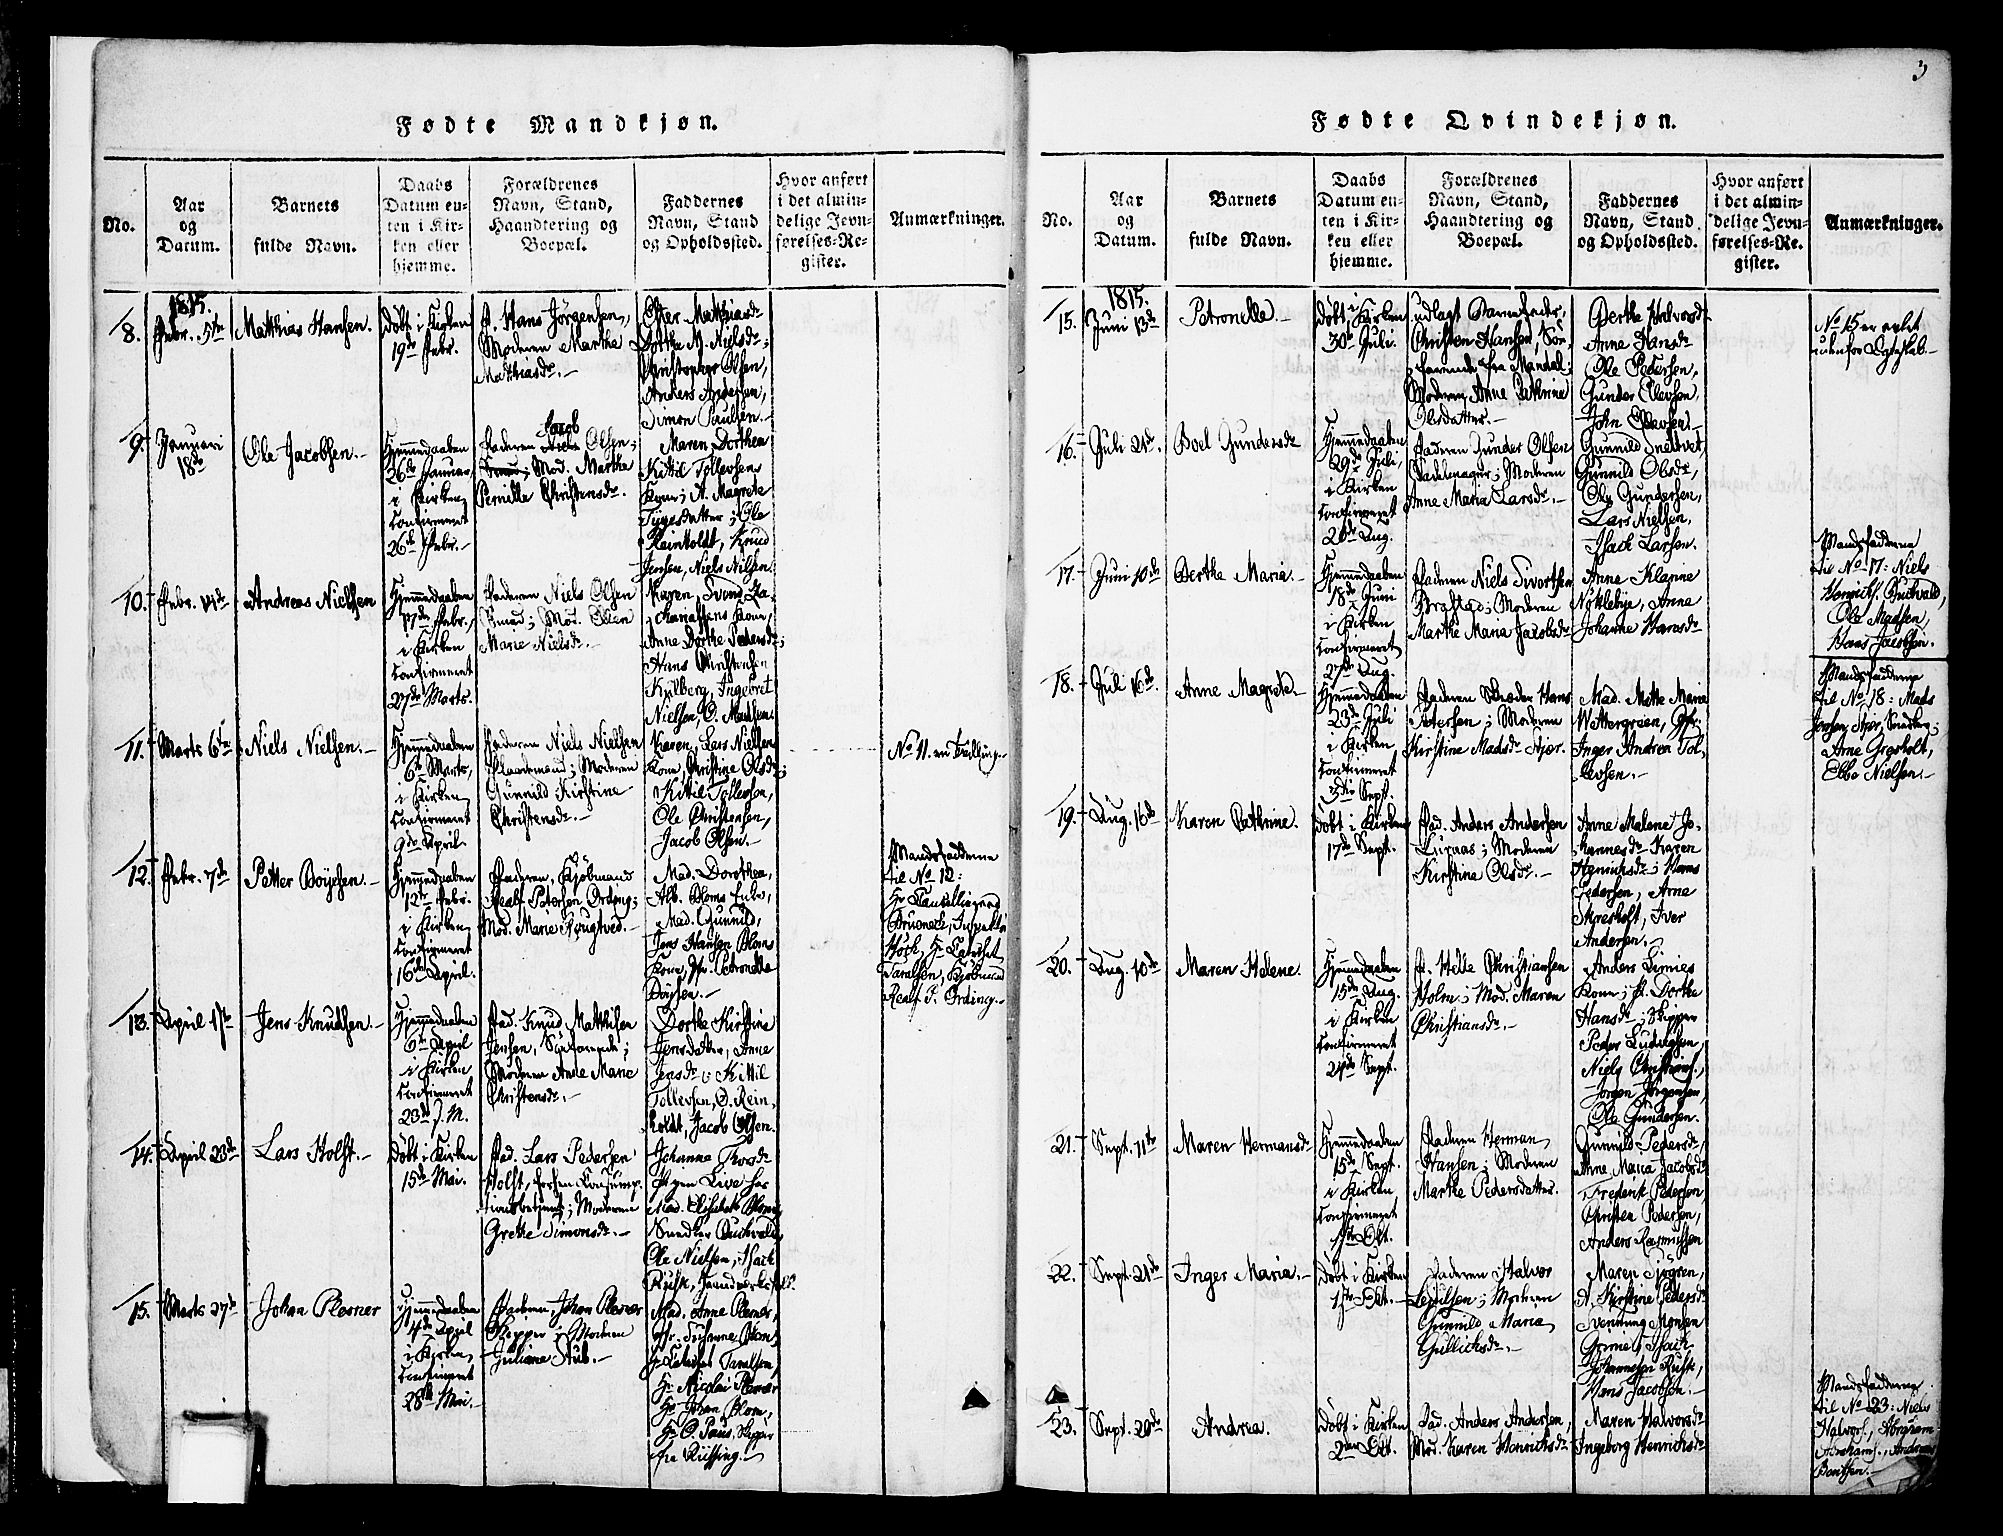 Fødte Mandkjøn.
No.
Aar
og
Datum.
Barnets
fulde Navn.
Daabs
Datum en-
ten i Kir-
ken eller
hjemme.
Forældrenes
Navn, Stand,
Haandtering og
Boepæl.
Faddernes
Navn, Stand
og Opholdssted.
Hvor anført
i det almin-
delige Jevn-
førelses-Re-
gister.
Anmærkninger.
1815.
8.
Febr. 5te
Matthias Hansen.
Døbt i Kirken
19de Febr.
F. Hans Jørgensen,
Moderen Marthe
Mathiasdr.
Mathiasdr
Dorthe M. Nielsdr;
Christopher Olsen,
Anders Andersen,
Simon Paulsen.
9.
Januari
18de
Ole Jacobsen.
Hjemmedaaben
26de Januar,
i Kirken
confirmeret
26de Febr.
Jacob
Faderen Olsen;
Mod. Marthe
Pernille Christensdr.
Maren Dorthea
Kittil Tollevsens
Kone; A. Magrete
Tygesdatter; Ole
Reinholdt, Knud
Jensen, Niels Nilsen.
10.
Febr. 14de
Andreas Nielsen
Hjemmedaaben
17de Febr.,
i Kirken
confirmeret
27de Marts.
Faderen Niels Olsen
Smed; Mod. Ellen
Marie Nielsdr.
Karen, Svend Za-
chariassens Kone,
Anne Dorthe Pedersdr;
Hans Christensen
Kylberg, Ingebret
Nielsen, O. Madsen.
11.
Marts 6te
Niels Nielsen.
Hjemmedaaben
6te Marts,
i Kirken
confirmeret
9de April
Faderen Niels Nielsen
Moderen
Gunnild Kirstine
Christensdr.
Karen, Lars Nielsens
Kone, Christine Olsdr;
Kittil Tollevsen,
Ole Christensen,
Jacob Olsen.
No 11. en Tvilling.
12.
Febr. 7de
Petter Boyesen.
Hjemmedaaben
12te Febr.
i Kirken
confirmeret
16de April.
Faderen, Kjøbmand
Realf Petersen Ording;
Mod. Marie Rougtved.
Mad. Dorothea,
Alb. Bloms Enke,
Mad. Gunnild,
Jens Hansen Bloms
Kone, Jfr. Petronelle
Boysen.
Mandsfadderne
til No 12:
Hr
Høeck, Hr Catechet
Taralsen, Kjøbmand
Realf P. Ording.
13.
April 1ste
Jens Knudsen.
Hjemmedaaben
6te April
i Kirken
confirmeret
23de J. M.
Fad. Knud Mathisen
Jensen, Søefarende;
Moderen Anne Marie
Christensdr.
Dorthe Kirstine
Jensdatter, Anne
Jensdr; Kittil
Tollevsen, O. Rein-
holdt, Jacob Olsen.
14.
April 23de
Lars Holst.
Døbt i Kirken
15de Mai.
Fad. Lars Pedersen
Holst, forhen Consump-
tionsbetjent; Moderen
Grethe Simonsdr.
Johanne
Mad. Elisabeth Blom;
Buchvald,
Ole Nielsen, Isach
Rusk,
15.
Marts 27de
Johan Plesner
Hjemmedaaben
4de April
i Kirken
confirmeret
28de Mai.
Faderen, Johan Plesner
Skipper; Moderen
Juliane Stub.
Mad. Anne Plesner,
Jfr. Susanne Blom;
Hr Catechet Taralsen,
Hr Nicolai Plesner
Hr Johan Blom,
Hr O. Paus, Skipper
fra
3
Fødte Qvindekjøn.
No.
Aar
og
Datum.
Barnets
fulde Navn.
Daabs
Datum en-
ten i Kir-
ken eller
hjemme.
Forældrenes
Navn, Stand,
Haandtering og
Boepæl.
Faddernes
Navn, Stand
og Opholdssted.
Hvor anført
i det almin-
delige Jevn-
førelses-Re-
gister.
Anmærkninger.
1815.
15.
Juni 13de
Petronelle.
Døbt i Kirken
30te Juli.
Udlagt Barnefader,
Christen Hansen, Søe-
farende fra Mandal;
Moderen Anne Cathrine
Olsdatter.
Berthe Halvorsdr
Anne Hansdr
Ole Pedersen,
Gunder Olevsen,
John Ellevsen.
No 15 er avlet
udenfor Egteskab.
16.
Juli 21de
Boel Gundersdr
Hjemmedaaben
29de Juli,
i Kirken
confirmeret
20de Aug.
Faderen Gunder Olsen
Sadelmager; Moderen
Anne Maria Larsdr.
Gunnild Snedtvet,
Gunnild Olsdr,
Ole Gundersen,
Lars Nielsen,
Isach Larsen.
17.
Juni 10de
Berthe Maria.
Hjemmedaaben
18de Juni
i Kirken
confirmeret
27de Aug.
Faderen Niels Sivertsen
Brestad; Moderen
Marthe Maria Jacobsdr
Anne Klarine
Nøkleby, Anne
Johanne Hansdr
Mandsfadderne
til No 17: Niels
Henrichs. Buchvald,
Ole Madsen,
Hans Jacobsen.
18.
Juli 16de.
Anne Magrete.
Hjemmedaaben
23de Juli
i Kirken
confirmeret
3die Sept.
Faderen Hans
Petersen; Moderen
Kirstine Madsdr Stjør.
Mad. Mette Maria
Wettergreen, Jfr.
Inger Andrea Tol-
levsen.
Mandsfadderne
til No 18: Mads
Arne Græsholt,
Ebbe Nielsen.
19.
Aug. 16de
Karen Cathrine.
Døbt i Kirken
17de Sept.
Fad. Anders Andersen
Luraas; Moderen
Kirstine Olsdr.
Anne Malene Jo-
hannesdr Karen
Henrichsdr; Hans
Pedersen, Arne
Græsholt, Iver
Andersen.
20.
Aug. 10de
Maren Helene.
Hjemmedaaben
15de Aug.
i Kirken
confirmeret
24de Sept.
F. Helle Christiansen
Holm; Mod. Maren
Christiansdr.
Anders Limies
Kone; A. Dorthe
Hansdr; Skipper
Peder Ludvigsen,
Niels Christians.,
Jørgen Jørgensen,
Ole Gundersen.
21.
Sept. 11te
Maren Hermansdr
Hjemmedaaben
15de Sept.
i Kirken
confirmeret
1ste Okt.
Faderen Herman
Hansen; Moderen
Marthe Pedersdatter.
Gunnild Pedersdr,
Anne Maria Jacobsdr
Frederik Pedersen,
Christen Pedersen,
Anders Rasmussen
22.
Sept. 21de
Inger Maria.
Døbt i Kirken
1ste Okt.
Faderen Halvor
Moderen
Gunnild Maria
Gullichsdr.
Maren Sjøgren,
A. Kirstine Pedersdr
Svenning Monsen
Isach
Johannesen Rusk,
Hans Jacobsen.
23.
Sept. 20de
Andrea.
Døbt i Kirken
2den Okt.
Fad. Anders Andersen,
Mod. Karen Henrichsdr
Maren Halvorsdr
Ingeborg Henrichsdr
Mandsfadderne
til No 23: Niels
Halvors., Abraham
Abrahams., Andreas
Bentsen.